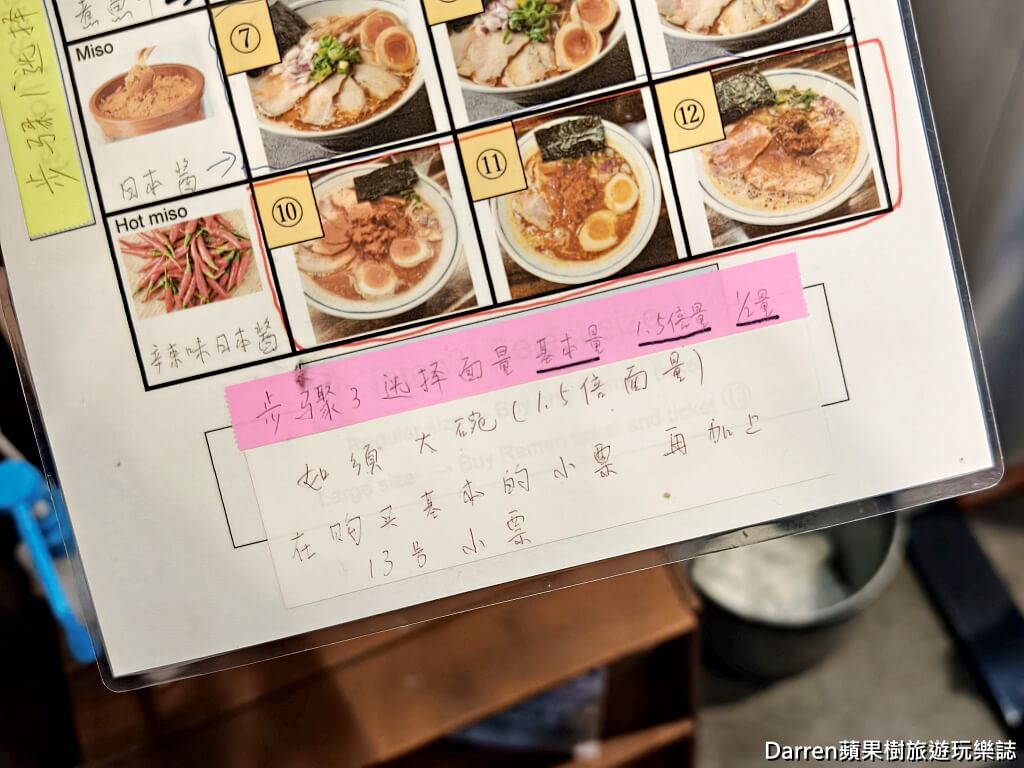 煮魚
步骤1选择
Miso
⑦
日本醬
⑫
⑪
Hot miso
⑩
辛辣味日本醬
步骤3 选择面量 基本量 1.5倍量 1/2量
如須大碗(1.5倍面量)
Large size → Buy Ramen ticket and ticket ⑬
在购买基本的小票 再加上
13号小票
Darren蘋果樹旅遊玩樂誌